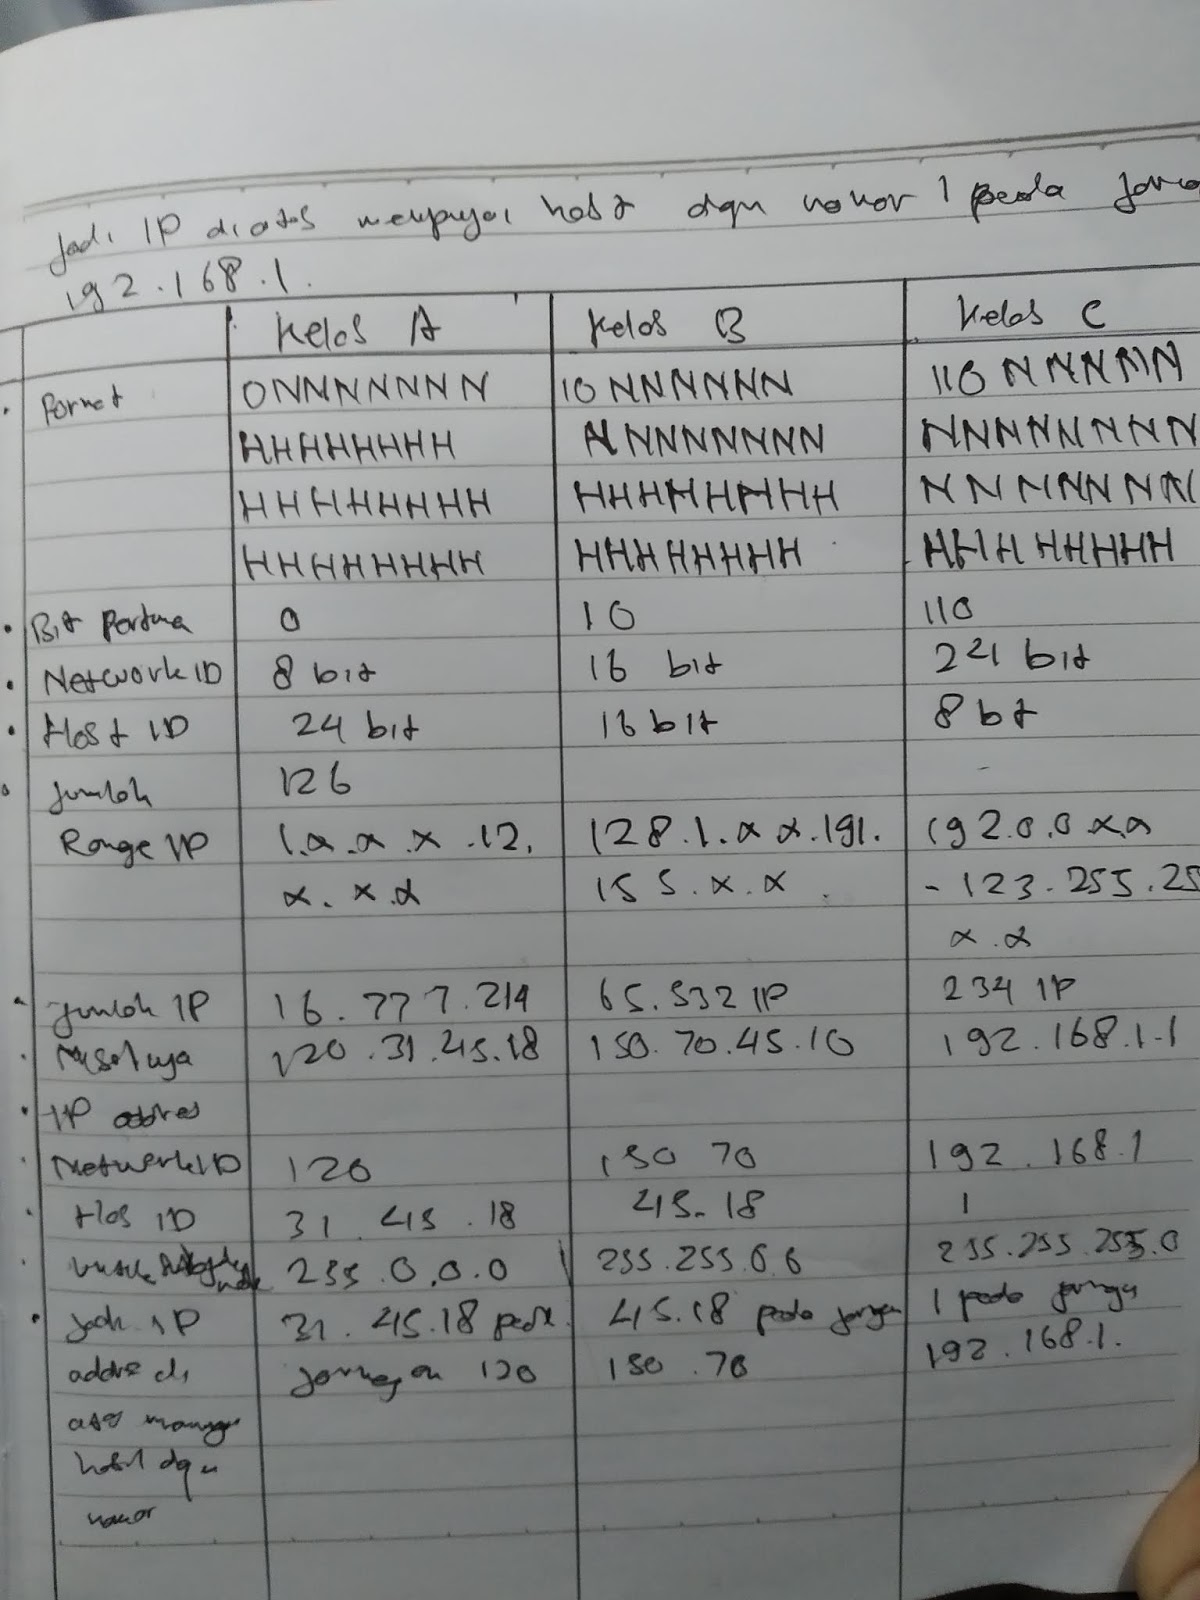 Jadi IP diatas mempunyai host dgn nomor 1 pada
192.168.1.
Kelas A Kelas B Kelas C
Format 0NNNNNNN 10NNNNNN 110NNNNN
HHHHHHHH NNNNNNNN NNNNNNNN
HHHHHHHH HHHHHHHH NNNNNNNN
HHHHHHHH HHHHHHHH HHHHHHHH
Bit Pertama 0 10 110
Network ID 8 bit 16 bit 24 bit
Host ID 24 bit 16 bit 8 bt
Jumlah 126 -
Range IP 1.x.x.x.12. 128.1.x x.191. 192.0.0 x x
x.x.x 155.x.x. - 123.255.25
x.x
Jumlah IP 16.777.214 65.532 IP 234 IP
Misalnya 120.31.45.18 150.70.45.10 192.168.1.1
IP addres
Network ID 120 150 70 192.168.1
Hos ID 31.45.18 45.18 1
255.0.0.0 255.255.0 0 255.255.255.0
Jadi IP 31.45.18 pada 45.18 pada jaringan 1 pada jaringan
addre di jaringan 120 150.70 192.168.1.
atas
host dgn
nomor